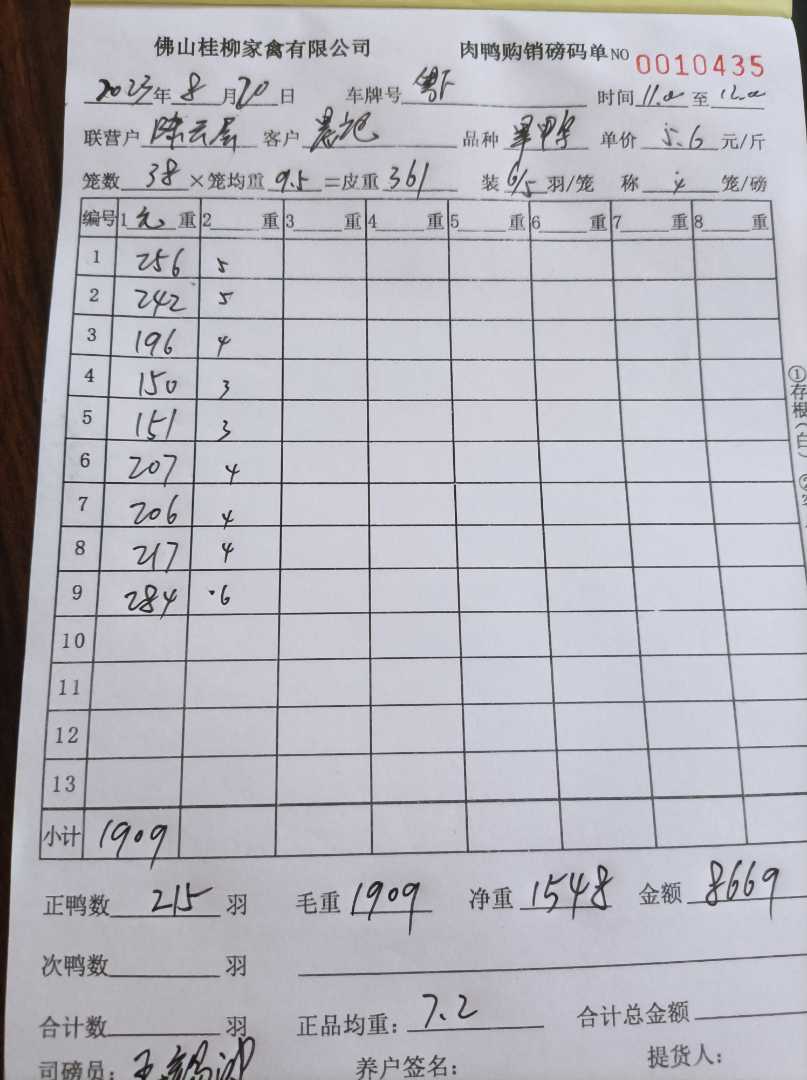 佛山桂柳家禽有限公司 肉鸭购销磅码单 NO 0010435
2023年 8月 20日 车牌号 时间 11.00 至 12.00
联营户 陈云 客户 品种 单价 5.6 元/斤
笼数 38 ×笼均重 9.5 =皮重 361 装 6/5 羽/笼 称 4 笼/磅
编号 1 重 2 重 3 重 4 重 5 重 6 重 7 重 8 重
1 256 5
2 242 5
3 196 4
4 150 3
5 151 3
6 207 4
7 206 4
8 217 4
9 284 ·6
10
11
12
13
小计 1909
正鸭数 215 羽 毛重 1909 净重 1548 金额 8669
次鸭数 羽
合计数 羽 正品均重: 7.2 合计总金额
司磅员: 养户签名: 提货人:
①存根(白)